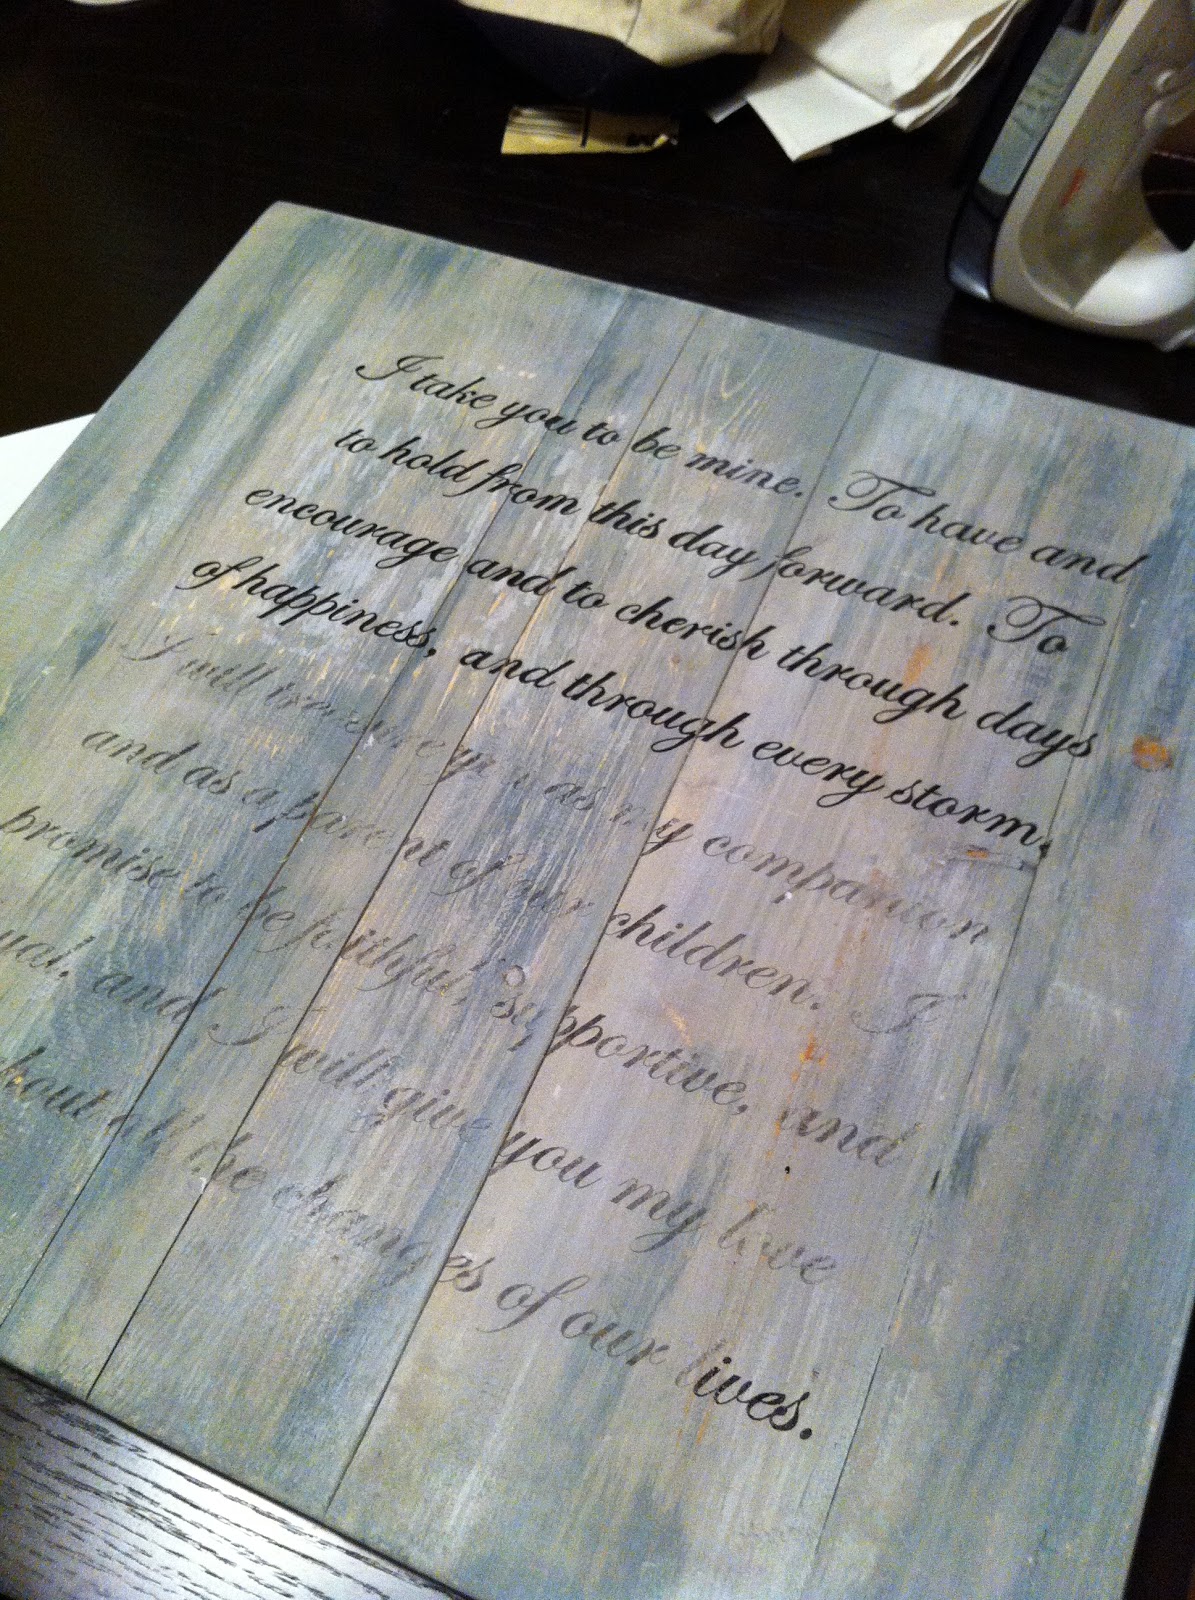 I take you to be mine. To have and
to hold from this day forward. To
encourage and to cherish through days
of happiness, and through every storm.
I will you as my companion
and as a parent of our children. I
promise to be faithful, supportive, and
and I will give you my love
all the changes of our lives.